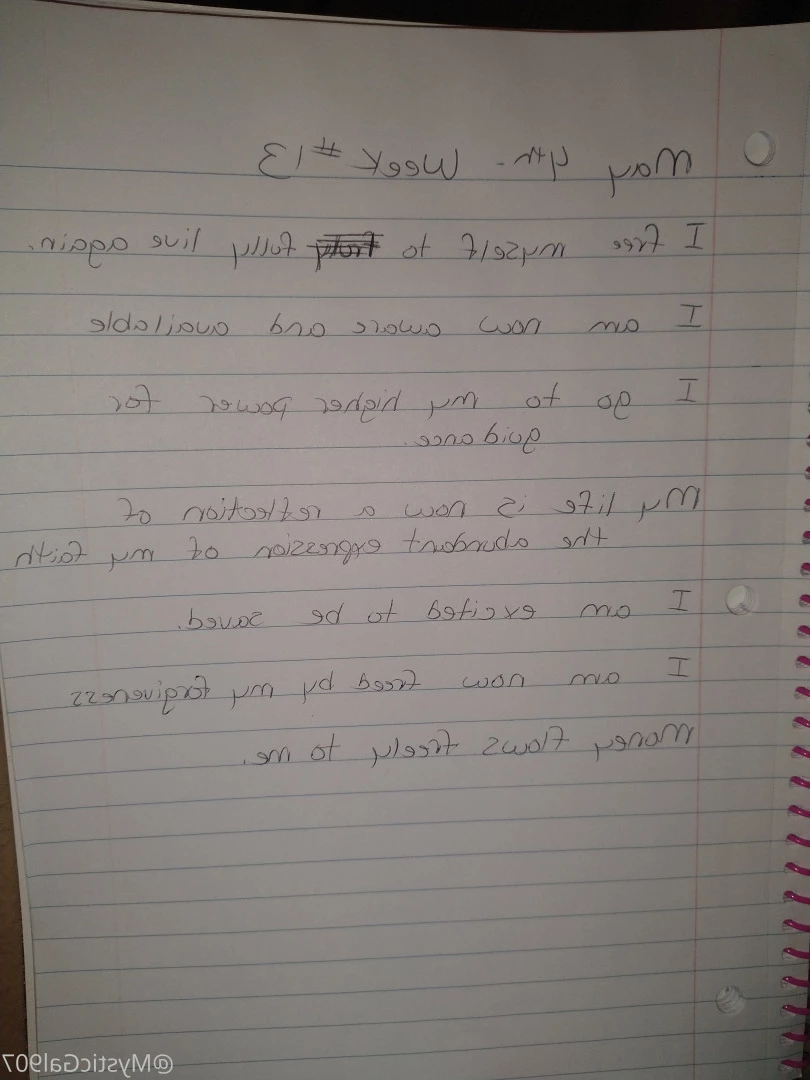 May 4th - Week #13
I free myself to fully live again.
I am now aware and available
I go to my higher power for
guidance.
My life is now a reflection of
the abundant expression of my faith
I am excited to be saved.
I am now freed by my forgiveness
Money flows freely to me.
@MysticGal907